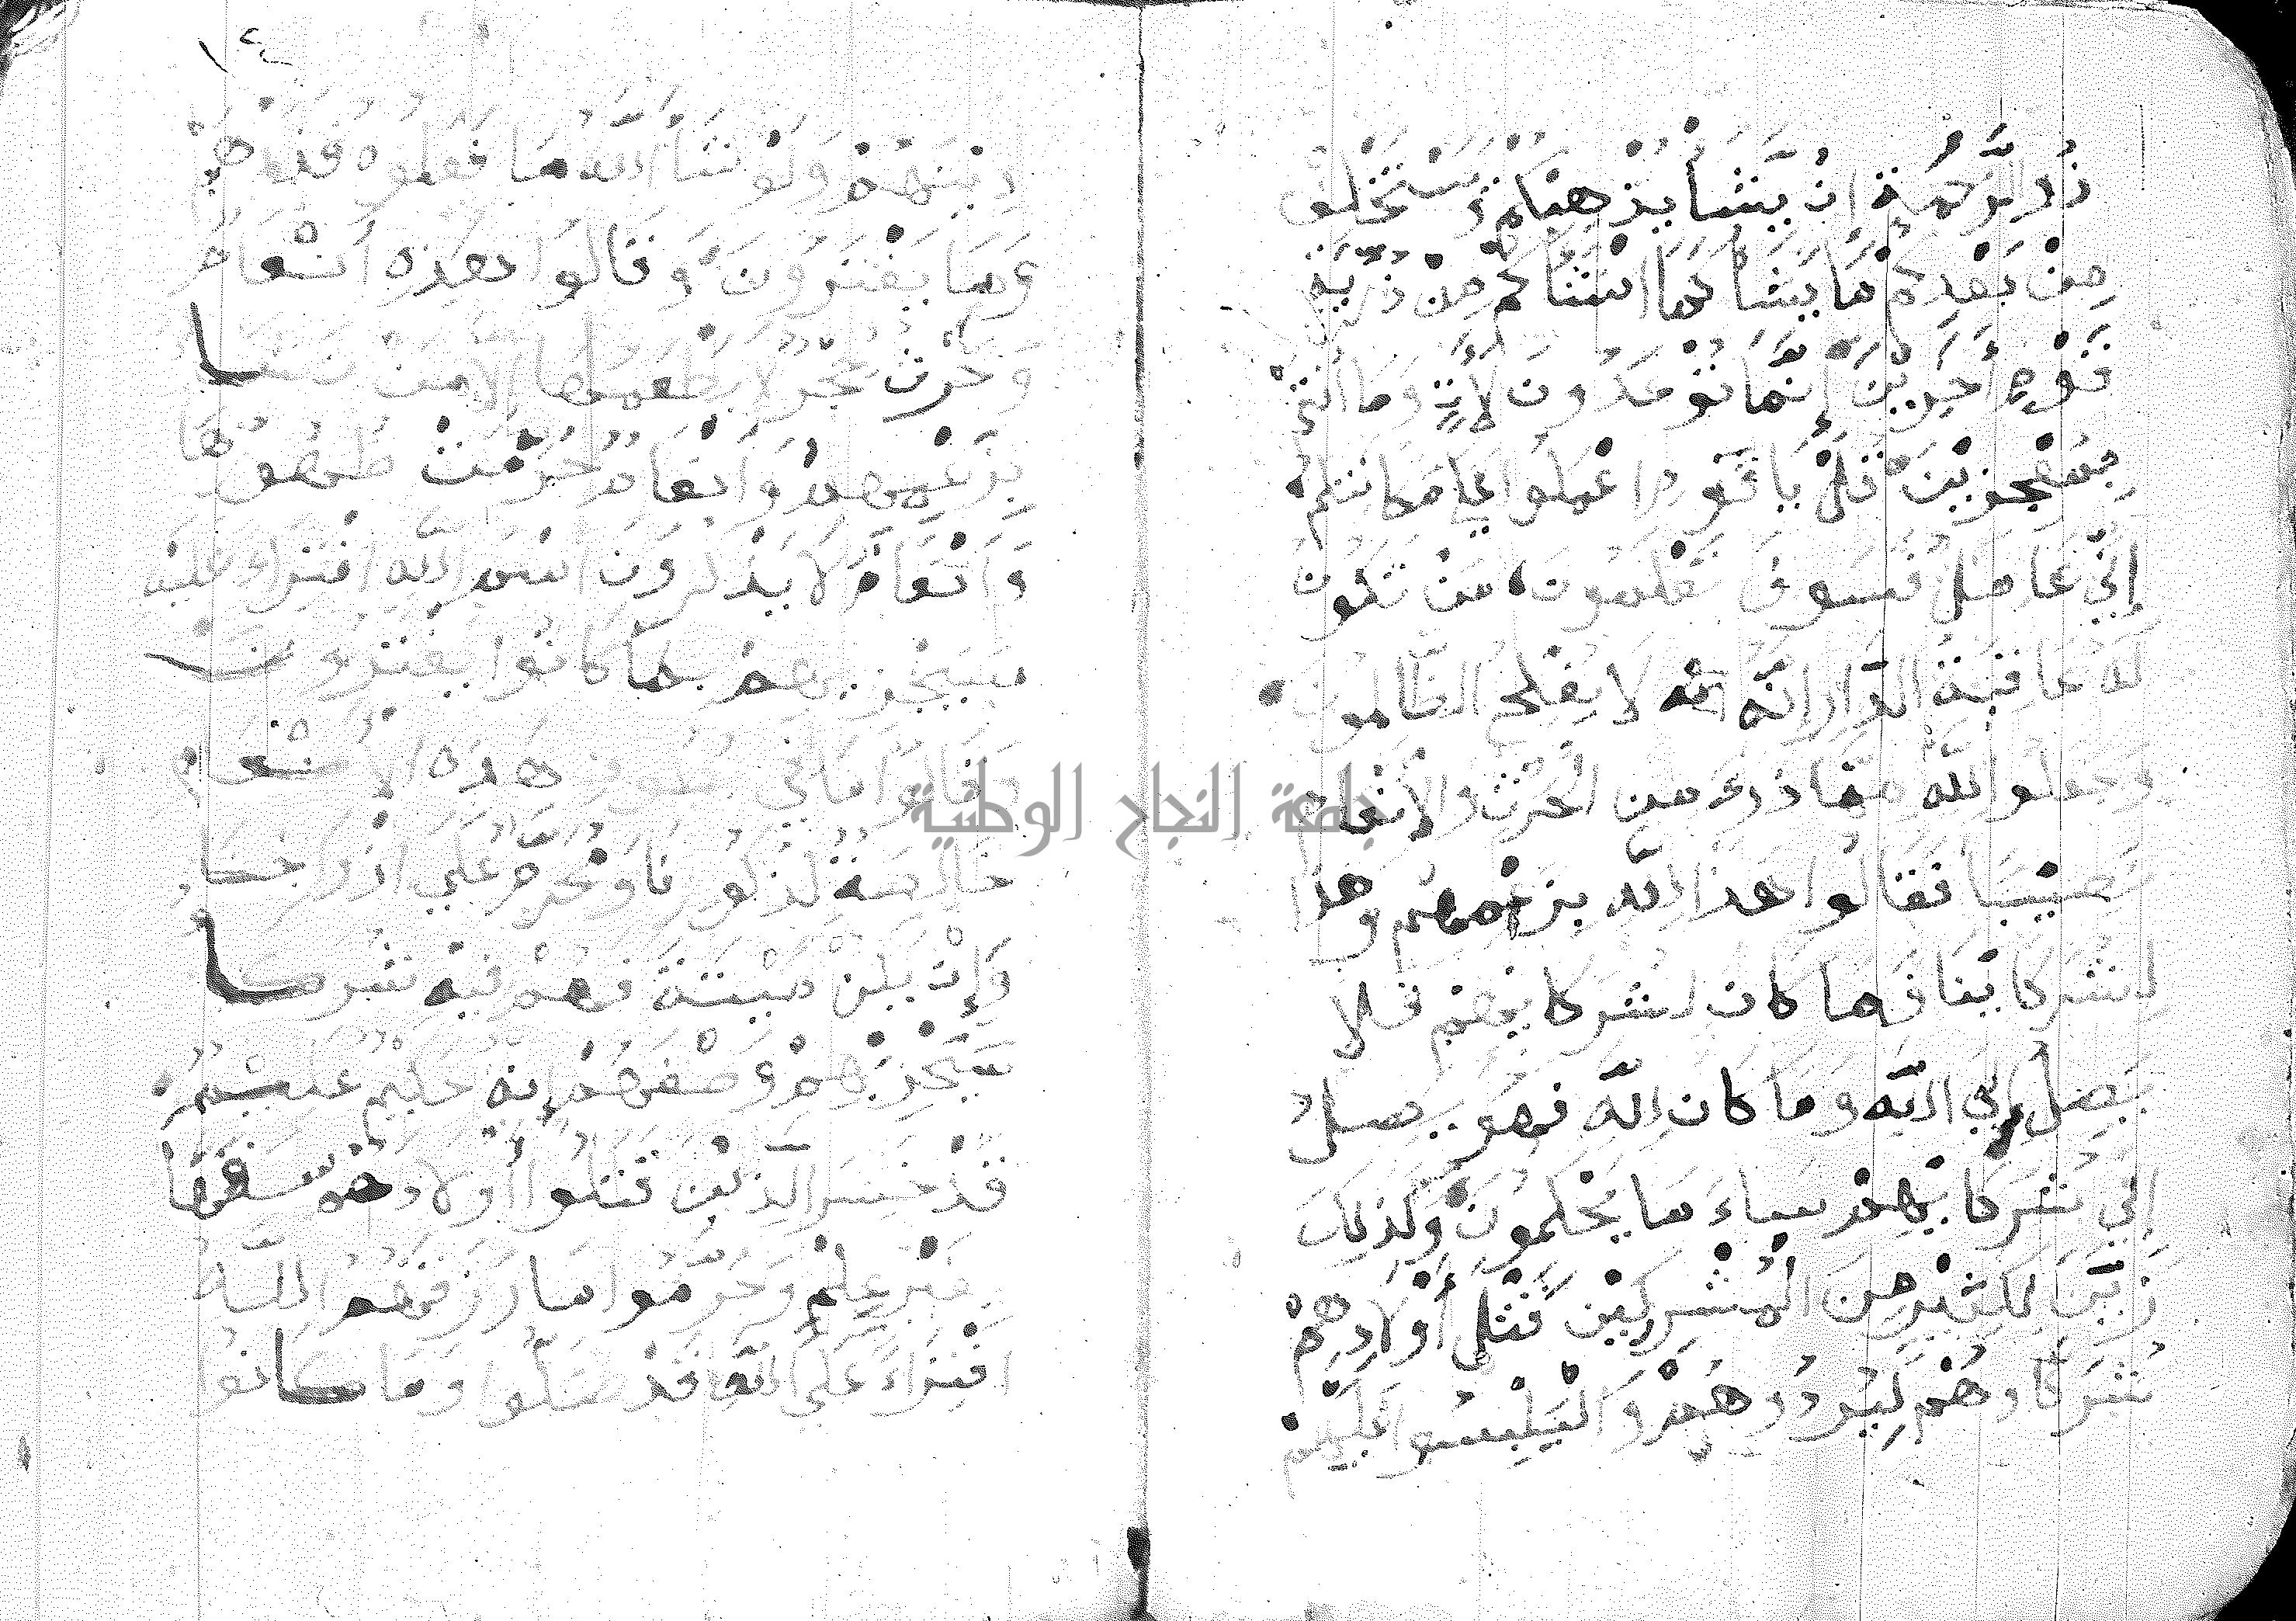 ذُو الرَّحْمَةِ إِنْ يَشَأْ يُذْهِبْكُمْ وَيَسْتَخْلِفْ
مِنْ بَعْدِكُمْ مَا يَشَأُ كَمَا أَنْشَأَكُمْ مِنْ ذُرِّيَّةِ
قَوْمٍ أَخَرِيْنَ إِنَّمَا تُوعَدُونَ لَأَتٍ وَمَا أَنْتُمْ
بِمُعْجِزِيْنَ قُلْ يَا قَوْمِ اعْمَلُوا عَلَى مَكَانَتِكُمْ
إِنِّي عَامِلٌ فَسَوْفَ تَعْلَمُونَ مَنْ تَكُونُ
لَهُ عَاقِبَةُ الدَّارِ إِنَّهُ لَا يُفْلِحُ الظَّالِمُونَ
وَجَعَلُوا لِلَّهِ مِمَّا ذَرَأَ مِنَ الْحَرْثِ وَالْأَنْعَامِ
نَصِيْبًا فَقَالُوا هَذَا لِلَّهِ بِزَعْمِهِمْ وَهَذَا
لِشُرَكَائِنَا فَمَا كَانَ لِشُرَكَائِهِمْ فَلَا
يَصِلُ إِلَى اللَّهِ وَمَا كَانَ لِلَّهِ فَهُوَ يَصِلُ
إِلَى شُرَكَائِهِمْ سَاءَ مَا يَحْكُمُونَ وَكَذَلِكَ
زَيَّنَ لِكَثِيْرٍ مِنَ الْمُشْرِكِيْنَ قَتْلَ أَوْلَادِهِمْ
شُرَكَاؤُهُمْ لِيُرْدُوهُمْ وَلِيَلْبِسُوا عَلَيْهِمْ
١٢
دِيْنَهُمْ وَلَوْ شَاءَ اللَّهُ مَا فَعَلُوهُ فَذَرْهُمْ
وَمَا يَفْتَرُونَ وَقَالُوا هَذِهِ أَنْعَامٌ
وَحَرْثٌ حِجْرٌ لَا يَطْعَمُهَا إِلَّا مَنْ نَشَا
بِزَعْمِهِمْ وَأَنْعَامٌ حُرِّمَتْ ظُهُورُهَا
وَأَنْعَامٌ لَا يَذْكُرُونَ اسْمَ اللَّهِ افْتِرَاءً عَلَيْهِ
سَيَجْزِيهِمْ بِمَا كَانُوا يَفْتَرُونَ
وَقَالُوا مَا فِي بُطُونِ هَذِهِ الْأَنْعَامِ
خَالِصَةٌ لِذُكُورِنَا وَمُحَرَّمٌ عَلَى أَزْوَاجِنَا
وَإِنْ يَكُنْ مَيْتَةً فَهُمْ فِيْهِ شُرَكَا
سَيَجْزِيْهِمْ وَصْفَهُمْ إِنَّهُ حَكِيْمٌ عَلِيْمٌ
قَدْ خَسِرَ الَّذِيْنَ قَتَلُوا أَوْلَادَهُمْ سَفَهًا
بِغَيْرِ عِلْمٍ وَحَرَّمُوا مَا رَزَقَهُمُ اللَّهُ
افْتِرَاءً عَلَى اللَّهِ قَدْ ضَلُّوا وَمَا كَانُوا
جامعة النجاح الوطنية